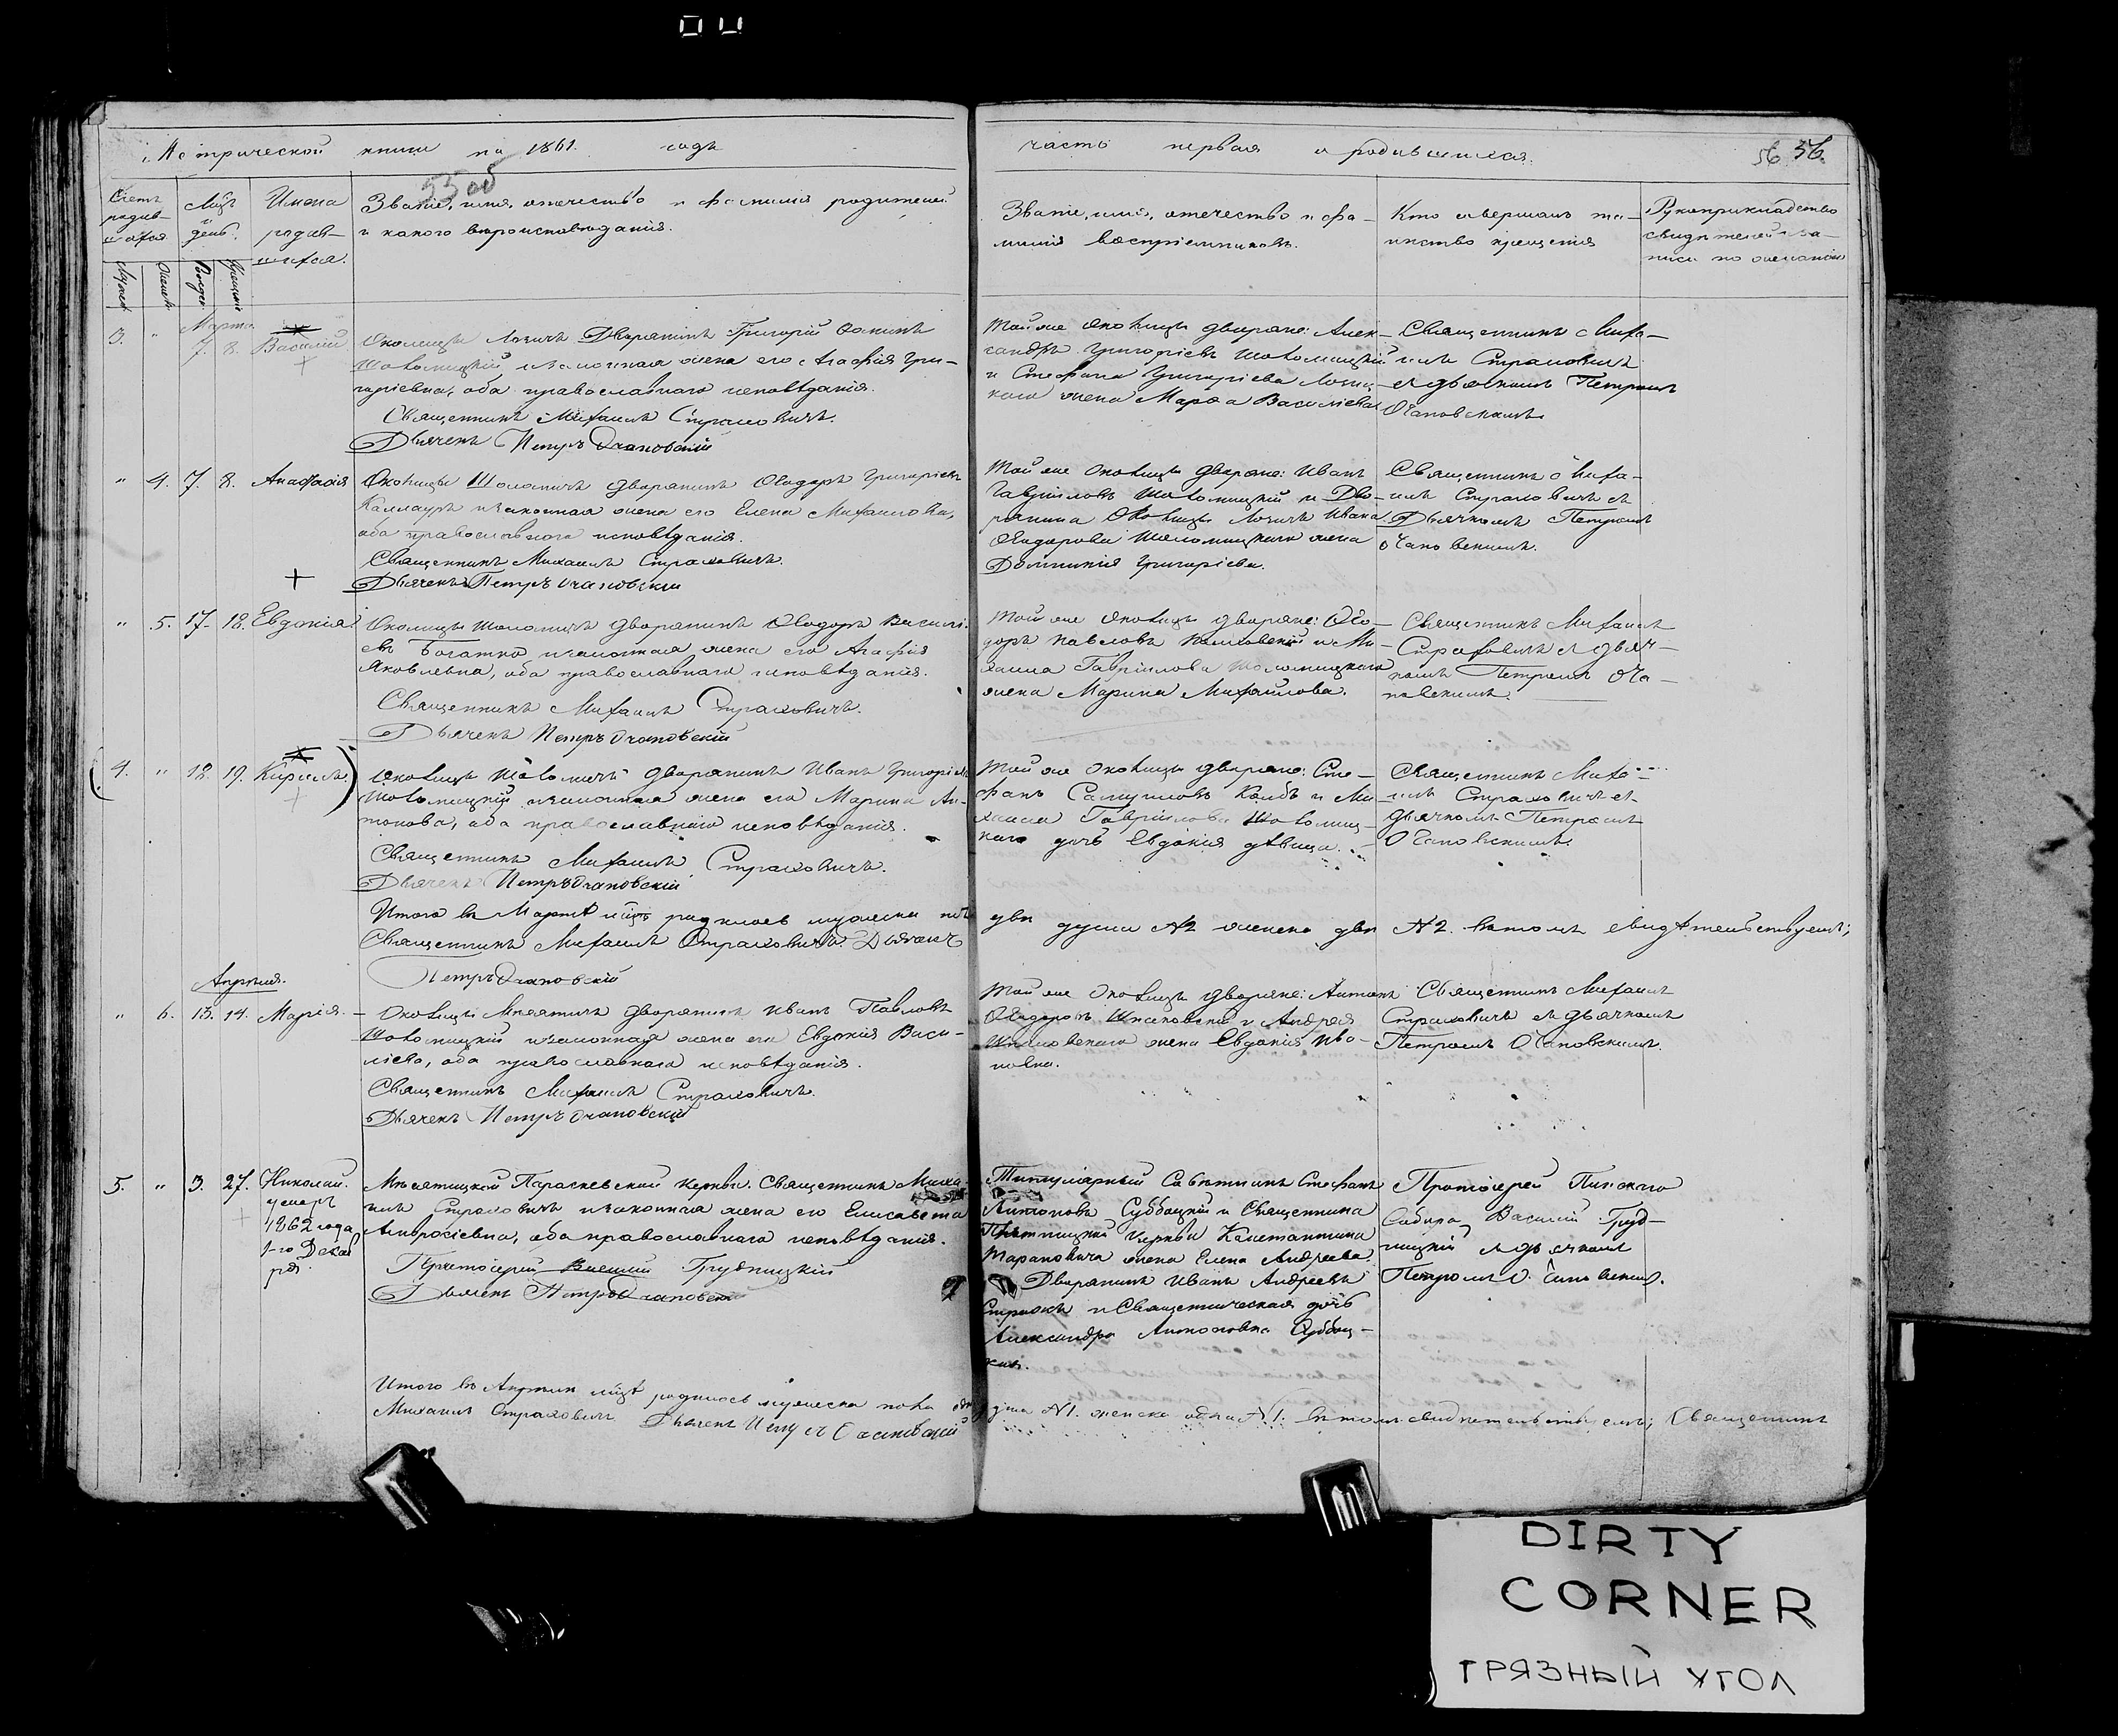 Метрической книги на 1861. годъ
часть первая о родившихся.
56 56.
Счетъ родив-
шихся.
Мцъ
и
день.
Имена
родив-
шихся.
Званіе, имя, отчество и фамилія родителей
и какого вѣроисповѣданія.
Званіе, имя, отчество и фа-
милія воспріемниковъ.
Кто совершалъ та-
инство крещенія
Рукоприкладство
свидѣтелей за-
писи по желанію
Марта
3. " 7. 8. Василій
Околицы Дворянинъ Григорій
Шоломицкій и законная жена его Агафія Гри-
горіевна, оба православнаго исповѣданія.
Священникъ Михаилъ Страховичъ.
Дьячекъ Петръ Очаповскій
Той же околицы дворяне: Алек-
сандръ Григоріевъ Шоломицкій
и Стефана Григоріева
жена Марѳа Васильева
Священникъ Миха-
илъ Страховичъ
съ дьячкомъ Петромъ
Очаповскимъ.
" 4. 7. 8. Анастасія
Околицы дворянинъ Ѳеодоръ Григоріевъ
Каллауръ и законная жена его Елена Михайлова,
оба православнаго исповѣданія.
Священникъ Михаилъ Страховичъ.
Дьячекъ Петръ Очаповскій
Той же околицы дворяне: Иванъ
Гавріиловъ Шоломицкій и Дво-
рянина околицы Ивана
Ѳеодорова Шоломицкаго жена
Домникія Григоріева.
Священникъ Миха-
илъ Страховичъ съ
Дьячкомъ Петромъ
Очаповскимъ.
" 5. 17. 18. Евдокія
Околицы дворянинъ Ѳеодоръ Василі-
евъ Богатко и законная жена его Агафія
Яковлевна, оба православнаго исповѣданія.
Священникъ Михаилъ Страховичъ.
Дьячекъ Петръ Очаповскій
Той же околицы дворяне: Ѳео-
доръ Павловъ и Ми-
хаила Гавріилова Шоломицкаго
жена Марина Михайлова.
Священникъ Михаилъ
Страховичъ съ дьяч-
комъ Петромъ Оча-
повскимъ.
4. " 18. 19. Кириллъ.
Околицы дворянинъ Иванъ Григоріевъ
Шоломицкій и законная жена его Марина Ан-
тонова, оба православнаго исповѣданія.
Священникъ Михаилъ Страховичъ.
Дьячекъ Петръ Очаповскій
Той же околицы дворяне: Сте-
фанъ Самуиловъ Колбъ и Ми-
хаила Гавріилова Шоломиц-
каго дочь Евдокія дѣвица.
Священникъ Миха-
илъ Страховичъ съ
дьячкомъ Петромъ
Очаповскимъ
Итого въ Мартѣ мцѣ родилось мужеска пола двѣ души №2 женска двѣ №2. въ томъ свидѣтельствуемъ;
Священникъ Михаилъ Страховичъ. Дьячекъ
Петръ Очаповскій
Апрѣля.
" 6. 13. 14. Марія.
Околицы дворянинъ Иванъ Павловъ
Шоломицкій и законная жена его Евдокія Васи-
ліева, оба православнаго исповѣданія.
Священникъ Михаилъ Страховичъ.
Дьячекъ Петръ Очаповскій
Той же околицы дворяне: Антонъ
Ѳеодоровъ и Андрея
жена Евдокія Ива-
новна.
Священникъ Михаилъ
Страховичъ съ дьячкомъ
Петромъ Очаповскимъ.
5. " 3. 27. Николай.
умеръ
1862 года
1-го Декаб
ря.
Параскевской церкви Священникъ Миха-
илъ Страховичъ и законная жена его Елисавета
Амвросіевна, оба православнаго исповѣданія.
Протоіерей Василій Грудницкій
Дьячекъ Петръ Очаповскій
Титулярный Совѣтникъ Стефанъ
Антоновъ Суббоцкій и Священника
церкви Константина
Тарановича жена Елена Андреева.
Дворянинъ Иванъ Андреевъ
и Священническая дочь
Александра Антоновна Суббоц-
кая.
Протоіерей Пинскаго
Собора Василій Груд-
ницкій съ дьячкомъ
Петромъ Очаповскимъ.
Итого въ Апрѣлѣ мцѣ родилось мужеска пола одна душа №1. женска одна №1. въ томъ свидѣтельствуемъ; Священникъ
Михаилъ Страховичъ Дьячекъ Петръ Очаповскій
DIRTY
CORNER
ГРЯЗНЫЙ УГОЛ